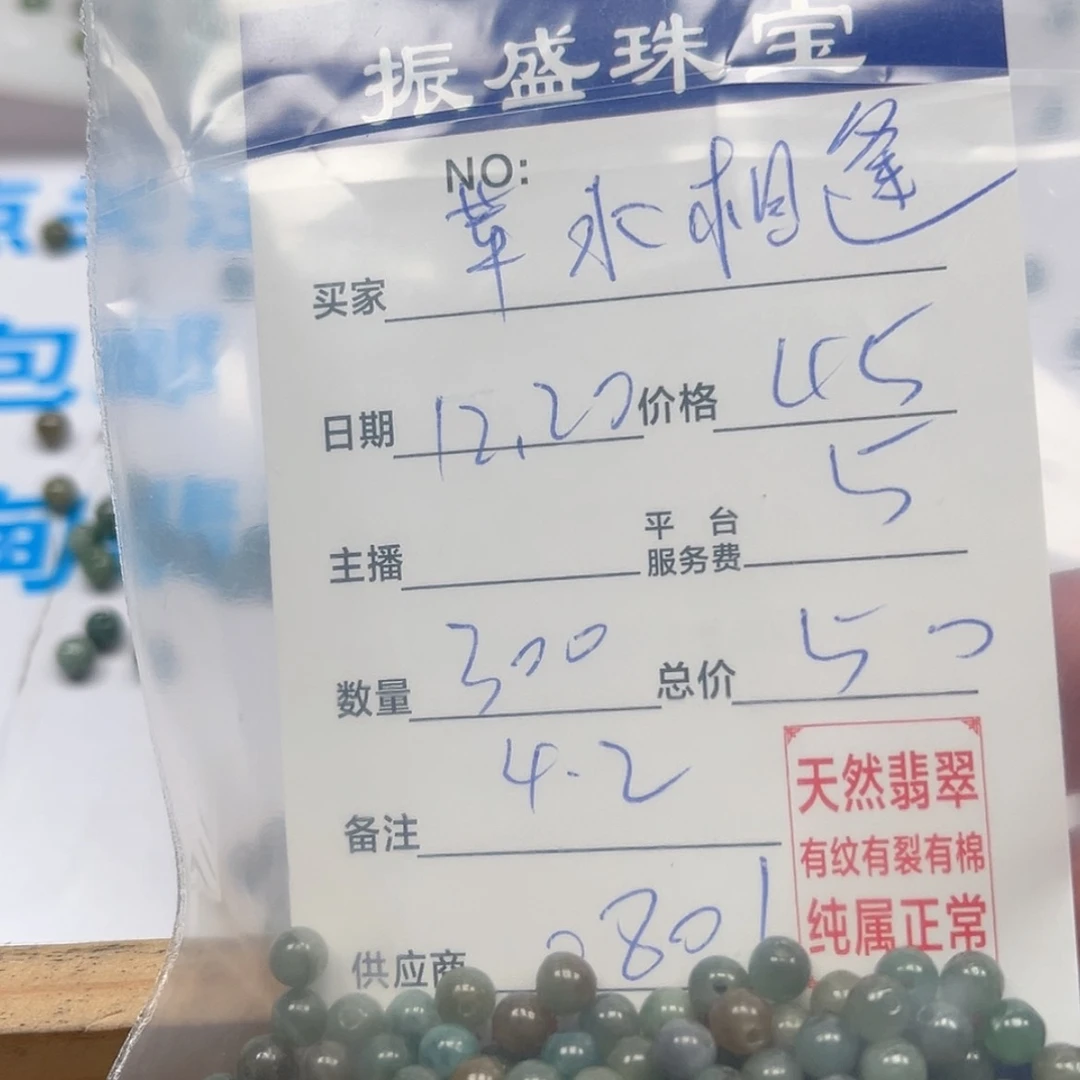 振盛珠宝
NO:
买家 萍水相逢
日期 12.20 价格 45
主播 平台服务费 5
数量 300 总价 50
备注 4.2
供应商 0801
天然翡翠
有纹有裂有棉
纯属正常
包